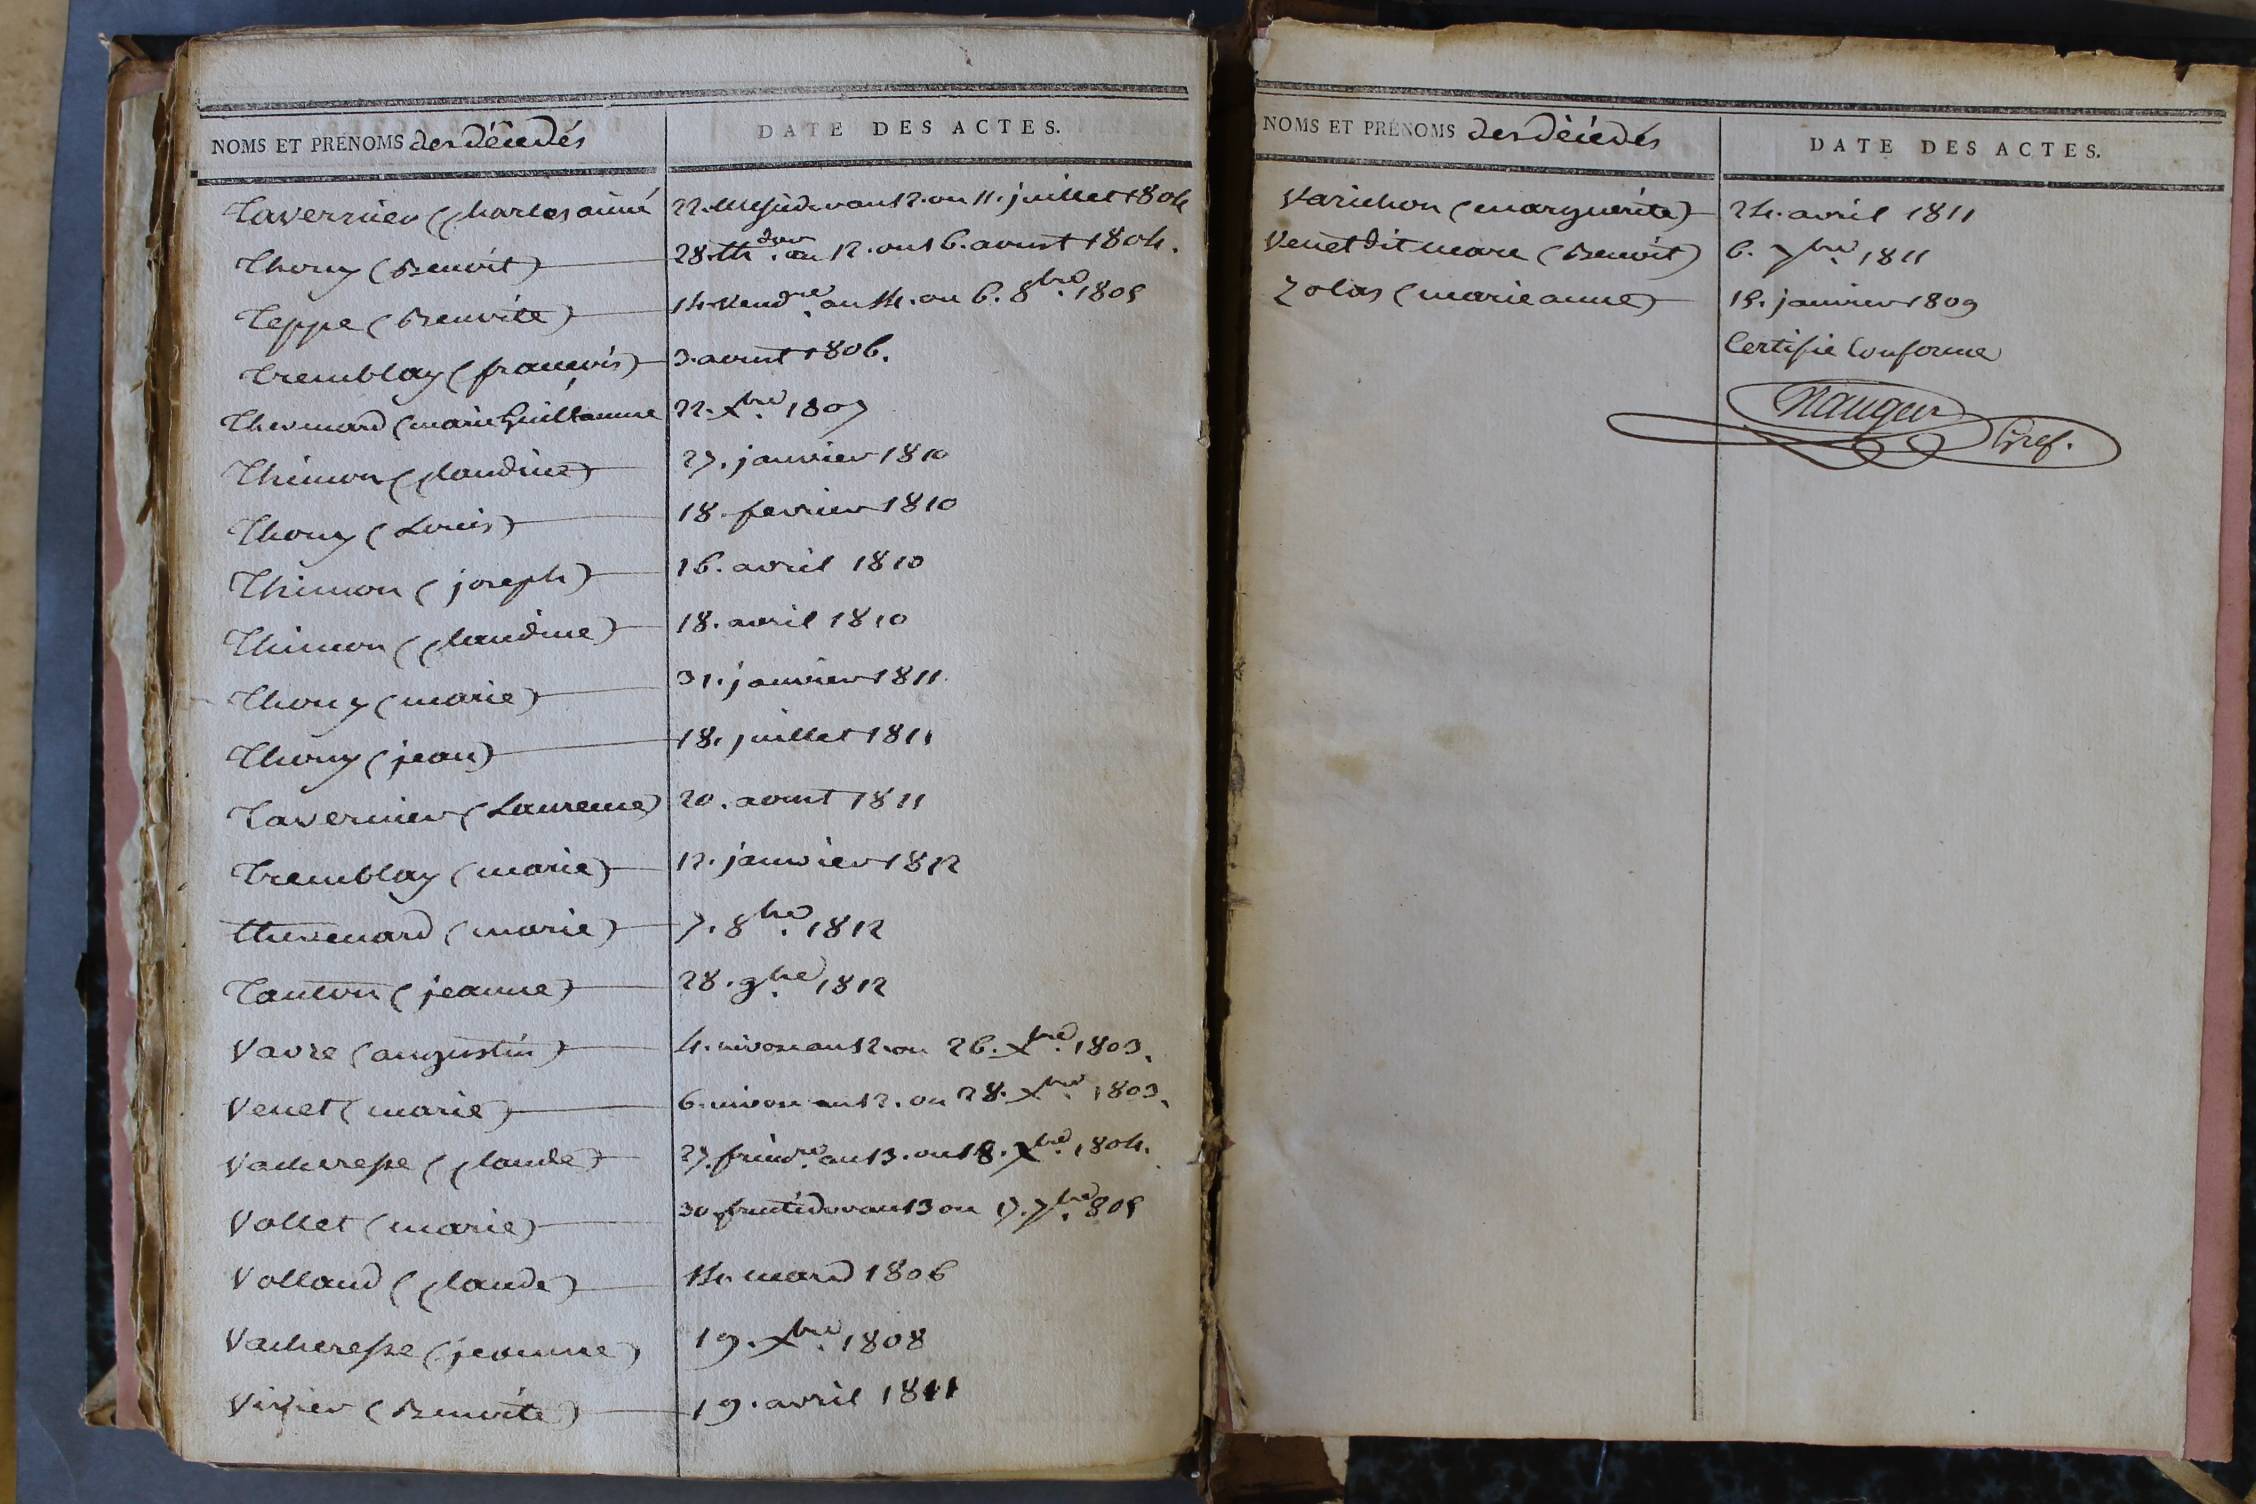 NOMS ET PRÉNOMS des décédés
DATE DES ACTES.
Tavernier (Charles aimé 22. Messidor an 12. ou 11. juillet 1804
Thony (Benoit) 28. th.dor an 12. ou 16. aoust 1804.
Teppe (Benoite) 14. Vend.re an 14. ou 6. 8bre. 1805
Tremblay (françois) 3. aoust 1806.
Thevenard (marie Guillaume 22. Xbre. 1807
Thimon (Claudine) 27. janvier 1810
Thony (Louis) 18. fevrier 1810
Thimon (joseph) 16. avril 1810
Thimon (Claudine) 18. avril 1810
Thony (marie) 31. janvier 1811
Thony (jean) 18. juillet 1811
Tavernier (Laurence) 20. aoust 1811
Tremblay (marie) 12. janvier 1812
thevenard (marie) 7. 8bre. 1812
Tanton (jeanne) 28. 9bre. 1812
Vavre (augustin) 4. nivose an 12. ou 26. Xbre. 1803.
Venet (marie) 6. nivose an 12. ou 28. Xbre. 1803.
Vacheresse (Claude) 27. frim.re an 13. ou 18. Xbre. 1804.
Vollet (marie) 30. fructidor an 13 ou 17. 7bre. 805
Volland (Claude) 14. mars 1806
Vacheresse (jeanne) 19. Xbre. 1808
Vivier (Benoite) 19. avril 1811
NOMS ET PRÉNOMS des décédés
DATE DES ACTES.
Varichon (marguerite) 24. avril 1811
Venet dit mare (Benoit) 6. 7bre. 1811
Zolas (marie anne) 15. janvier 1809
Certifié Conforme
Nauger
Gref.